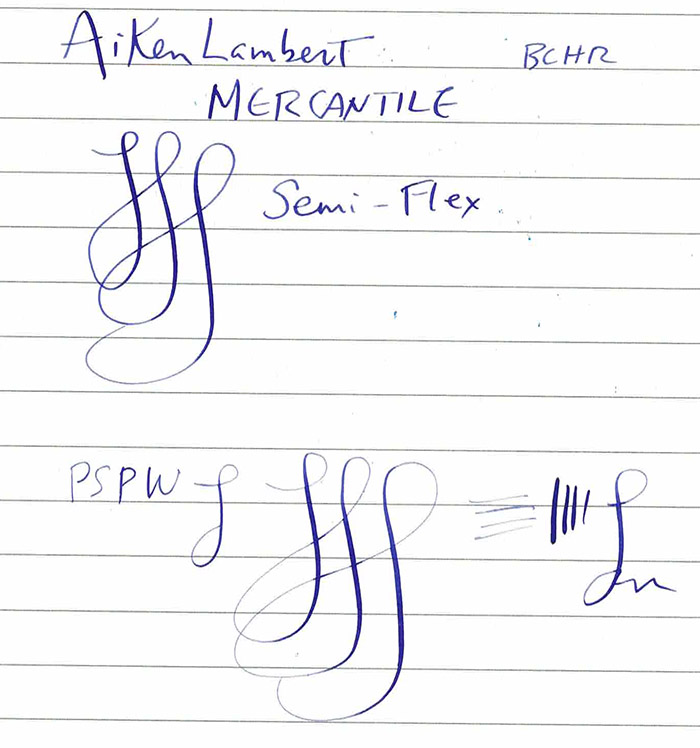 Aiken Lambert BCHR
MERCANTILE
Semi-Flex
PSPW